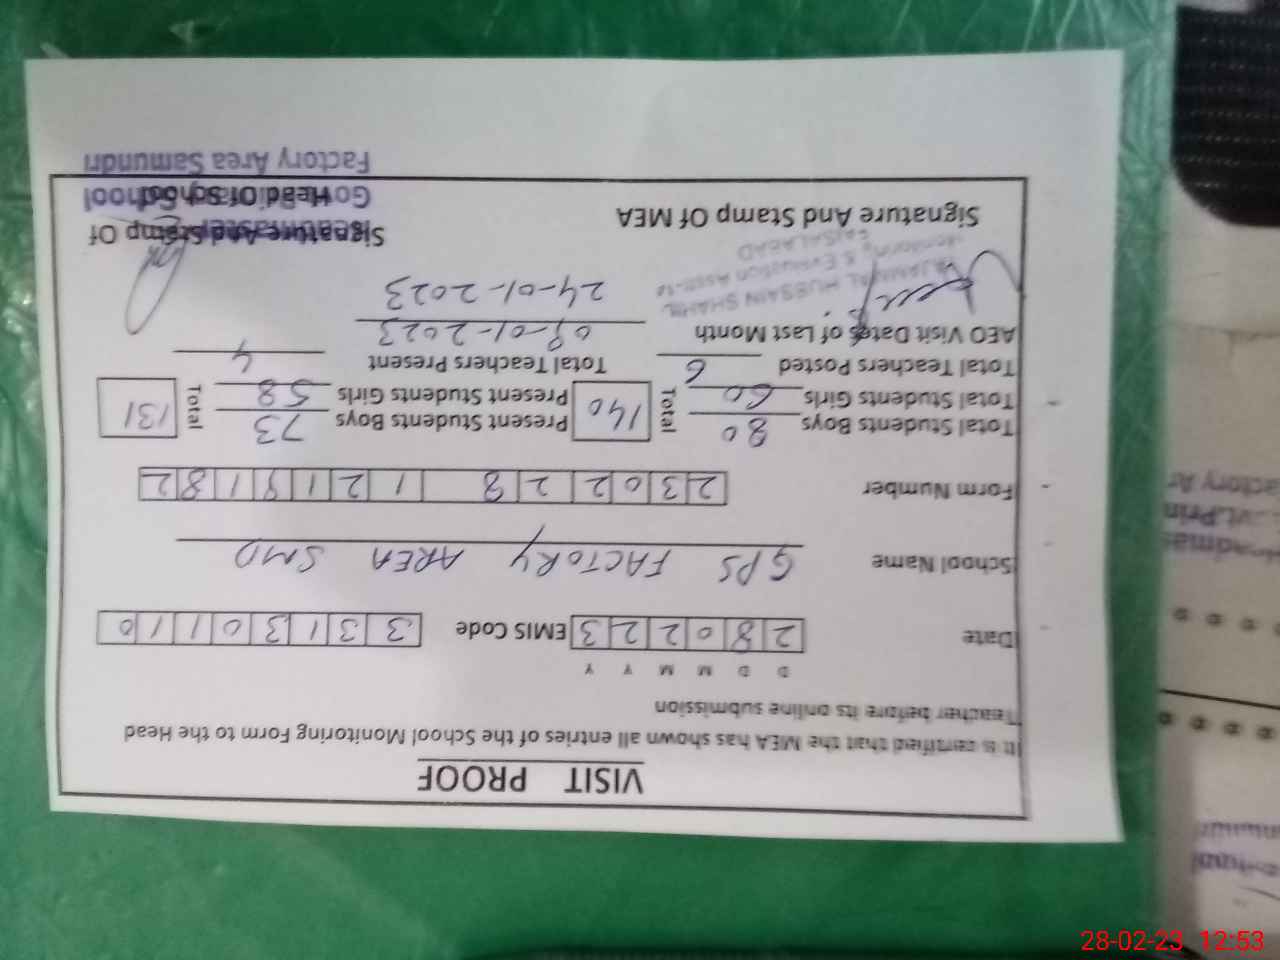 VISIT PROOF
It is certified that the MEA has shown all entries of the School Monitoring Form to the Head
Teacher before its online submission
D D M M Y Y
Date 280223 EMIS Code 33130110
School Name GPS FACTORY AREA SMD
Form Number 230228 1219182
Total Students Boys 80 Total 140 Present Students Boys 73 Total 131
Total Students Girls 60 Present Students Girls 58
Total Teachers Posted 6 Total Teachers Present 4
AEO Visit Dates of Last Month 09-01-2023
24-01-2023
HUSSAIN SHAHI
Monitoring & Evaluation Assistt
FAISALABAD
Signature And Stamp Of MEA
Signature And Stamp Of
Head Of School
School
Factory Area Samundri
28-02-23 12:53